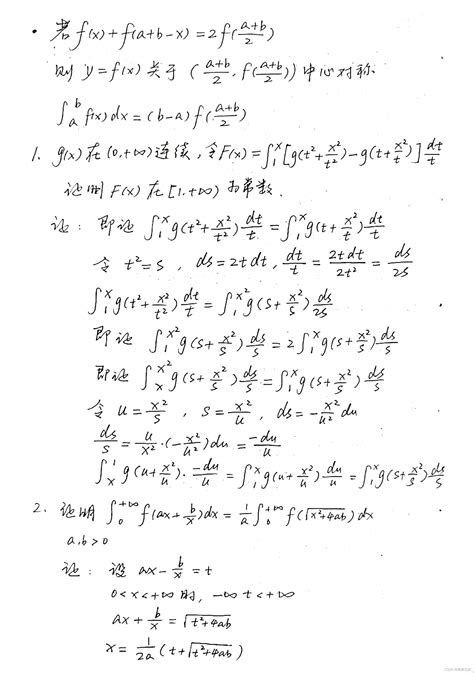 · 若 f(x)+f(a+b-x)=2f(\frac{a+b}{2})
则 y=f(x) 关于 (\frac{a+b}{2}, f(\frac{a+b}{2})) 中心对称
\int_a^b f(x)dx=(b-a)f(\frac{a+b}{2})
1. g(x)在(0,+∞)连续,令F(x)=\int_1^x[g(t^2+\frac{x^2}{t^2})-g(t+\frac{x^2}{t})]\frac{dt}{t}
证明 F(x) 在[1,+∞)为常数.
证: 即证 \int_1^x g(t^2+\frac{x^2}{t^2})\frac{dt}{t}=\int_1^x g(t+\frac{x^2}{t})\frac{dt}{t}
令 t^2=s, ds=2tdt, \frac{dt}{t}=\frac{2tdt}{2t^2}=\frac{ds}{2s}
\int_1^x g(t^2+\frac{x^2}{t^2})\frac{dt}{t}=\int_1^{x^2} g(s+\frac{x^2}{s})\frac{ds}{2s}
即证 \int_1^{x^2} g(s+\frac{x^2}{s})\frac{ds}{s}=2\int_1^x g(s+\frac{x^2}{s})\frac{ds}{s}
即证 \int_x^{x^2} g(s+\frac{x^2}{s})\frac{ds}{s}=\int_1^x g(s+\frac{x^2}{s})\frac{ds}{s}
令 u=\frac{x^2}{s}, s=\frac{x^2}{u}, ds=-\frac{x^2}{u^2}du
\frac{ds}{s}=\frac{u}{x^2}·(-\frac{x^2}{u^2})du=\frac{-du}{u}
\int_x^1 g(u+\frac{x^2}{u})·\frac{-du}{u}=\int_1^x g(u+\frac{x^2}{u})\frac{du}{u}=\int_1^x g(s+\frac{x^2}{s})\frac{ds}{s}
2. 证明 \int_0^{+∞} f(ax+\frac{b}{x})dx=\frac{1}{a}\int_0^{+∞} f(\sqrt{x^2+4ab})dx
a,b>0
证: 设 ax-\frac{b}{x}=t
0<x<+∞时, -∞<t<+∞
ax+\frac{b}{x}=\sqrt{t^2+4ab}
x=\frac{1}{2a}(t+\sqrt{t^2+4ab})